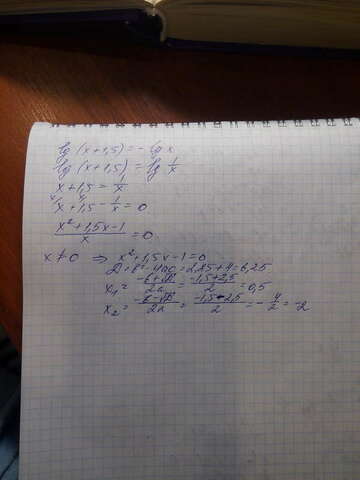 lg (x+1,5) = - lg x
lg (x+1,5) = lg 1/x
x+1,5 = 1/x
x + 1,5 - 1/x = 0
(x²+1,5x-1)/x = 0
x ≠ 0 ⇒ x²+1,5x-1=0
D = b²-4ac = 2,25+4=6,25
x₁ = (-b+√D)/2a = (-1,5+2,5)/2 = 0,5
x₂ = (-b-√D)/2a = (-1,5-2,5)/2 = -4/2 = -2